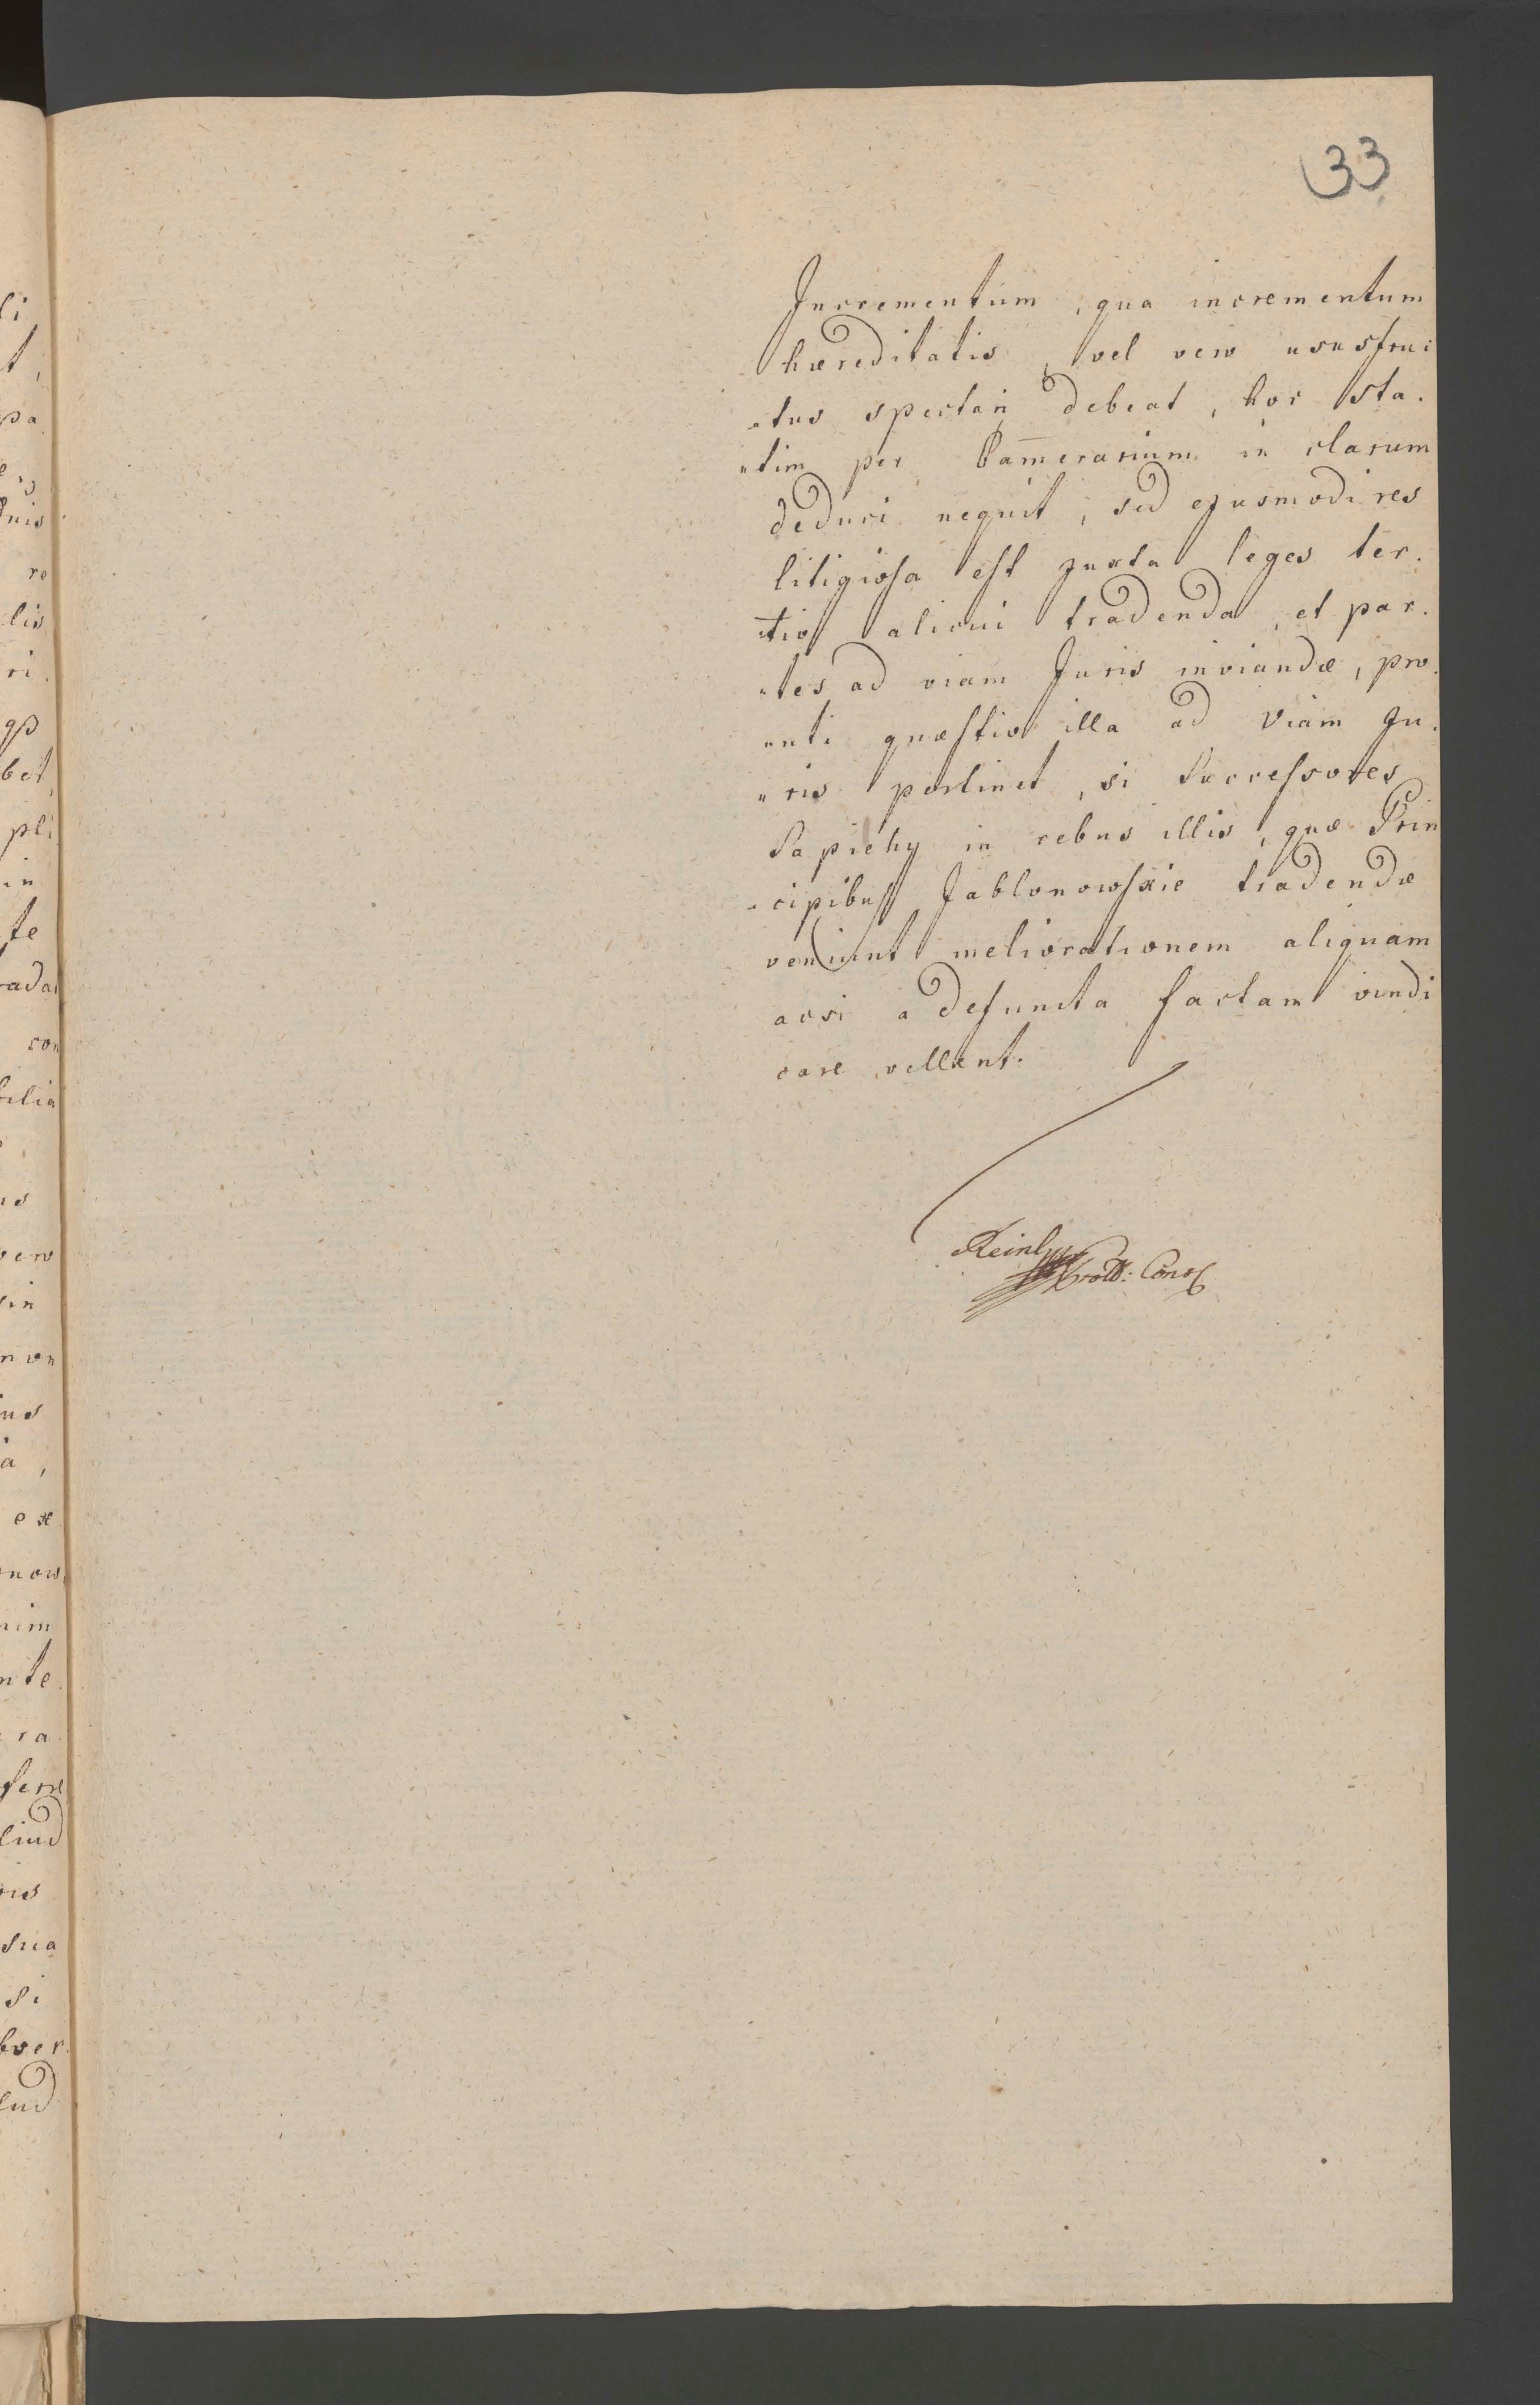 33
Incrementum, qua incrementum
hæreditatis, vel vero ususfruc
„tus spectari debeat, hoc sta.
„tim per Cam̄erarium in clarum
deduci nequit, sed ejusmodi res
litigiosa est juxta leges ter.
„tio alicui tradenda, et par.
„tes ad viam Juris inviandæ, pro.
„uti quæstio illa ad Viam Ju.
„ris pertinet, si Successores
Sapiehy in rebus illis, quæ Prin
„cipibus Jablonowskie tradendæ
veniunt meliorationem aliquam
acsi a defuncta factam vindi
care vellent.
Reinl
Cons